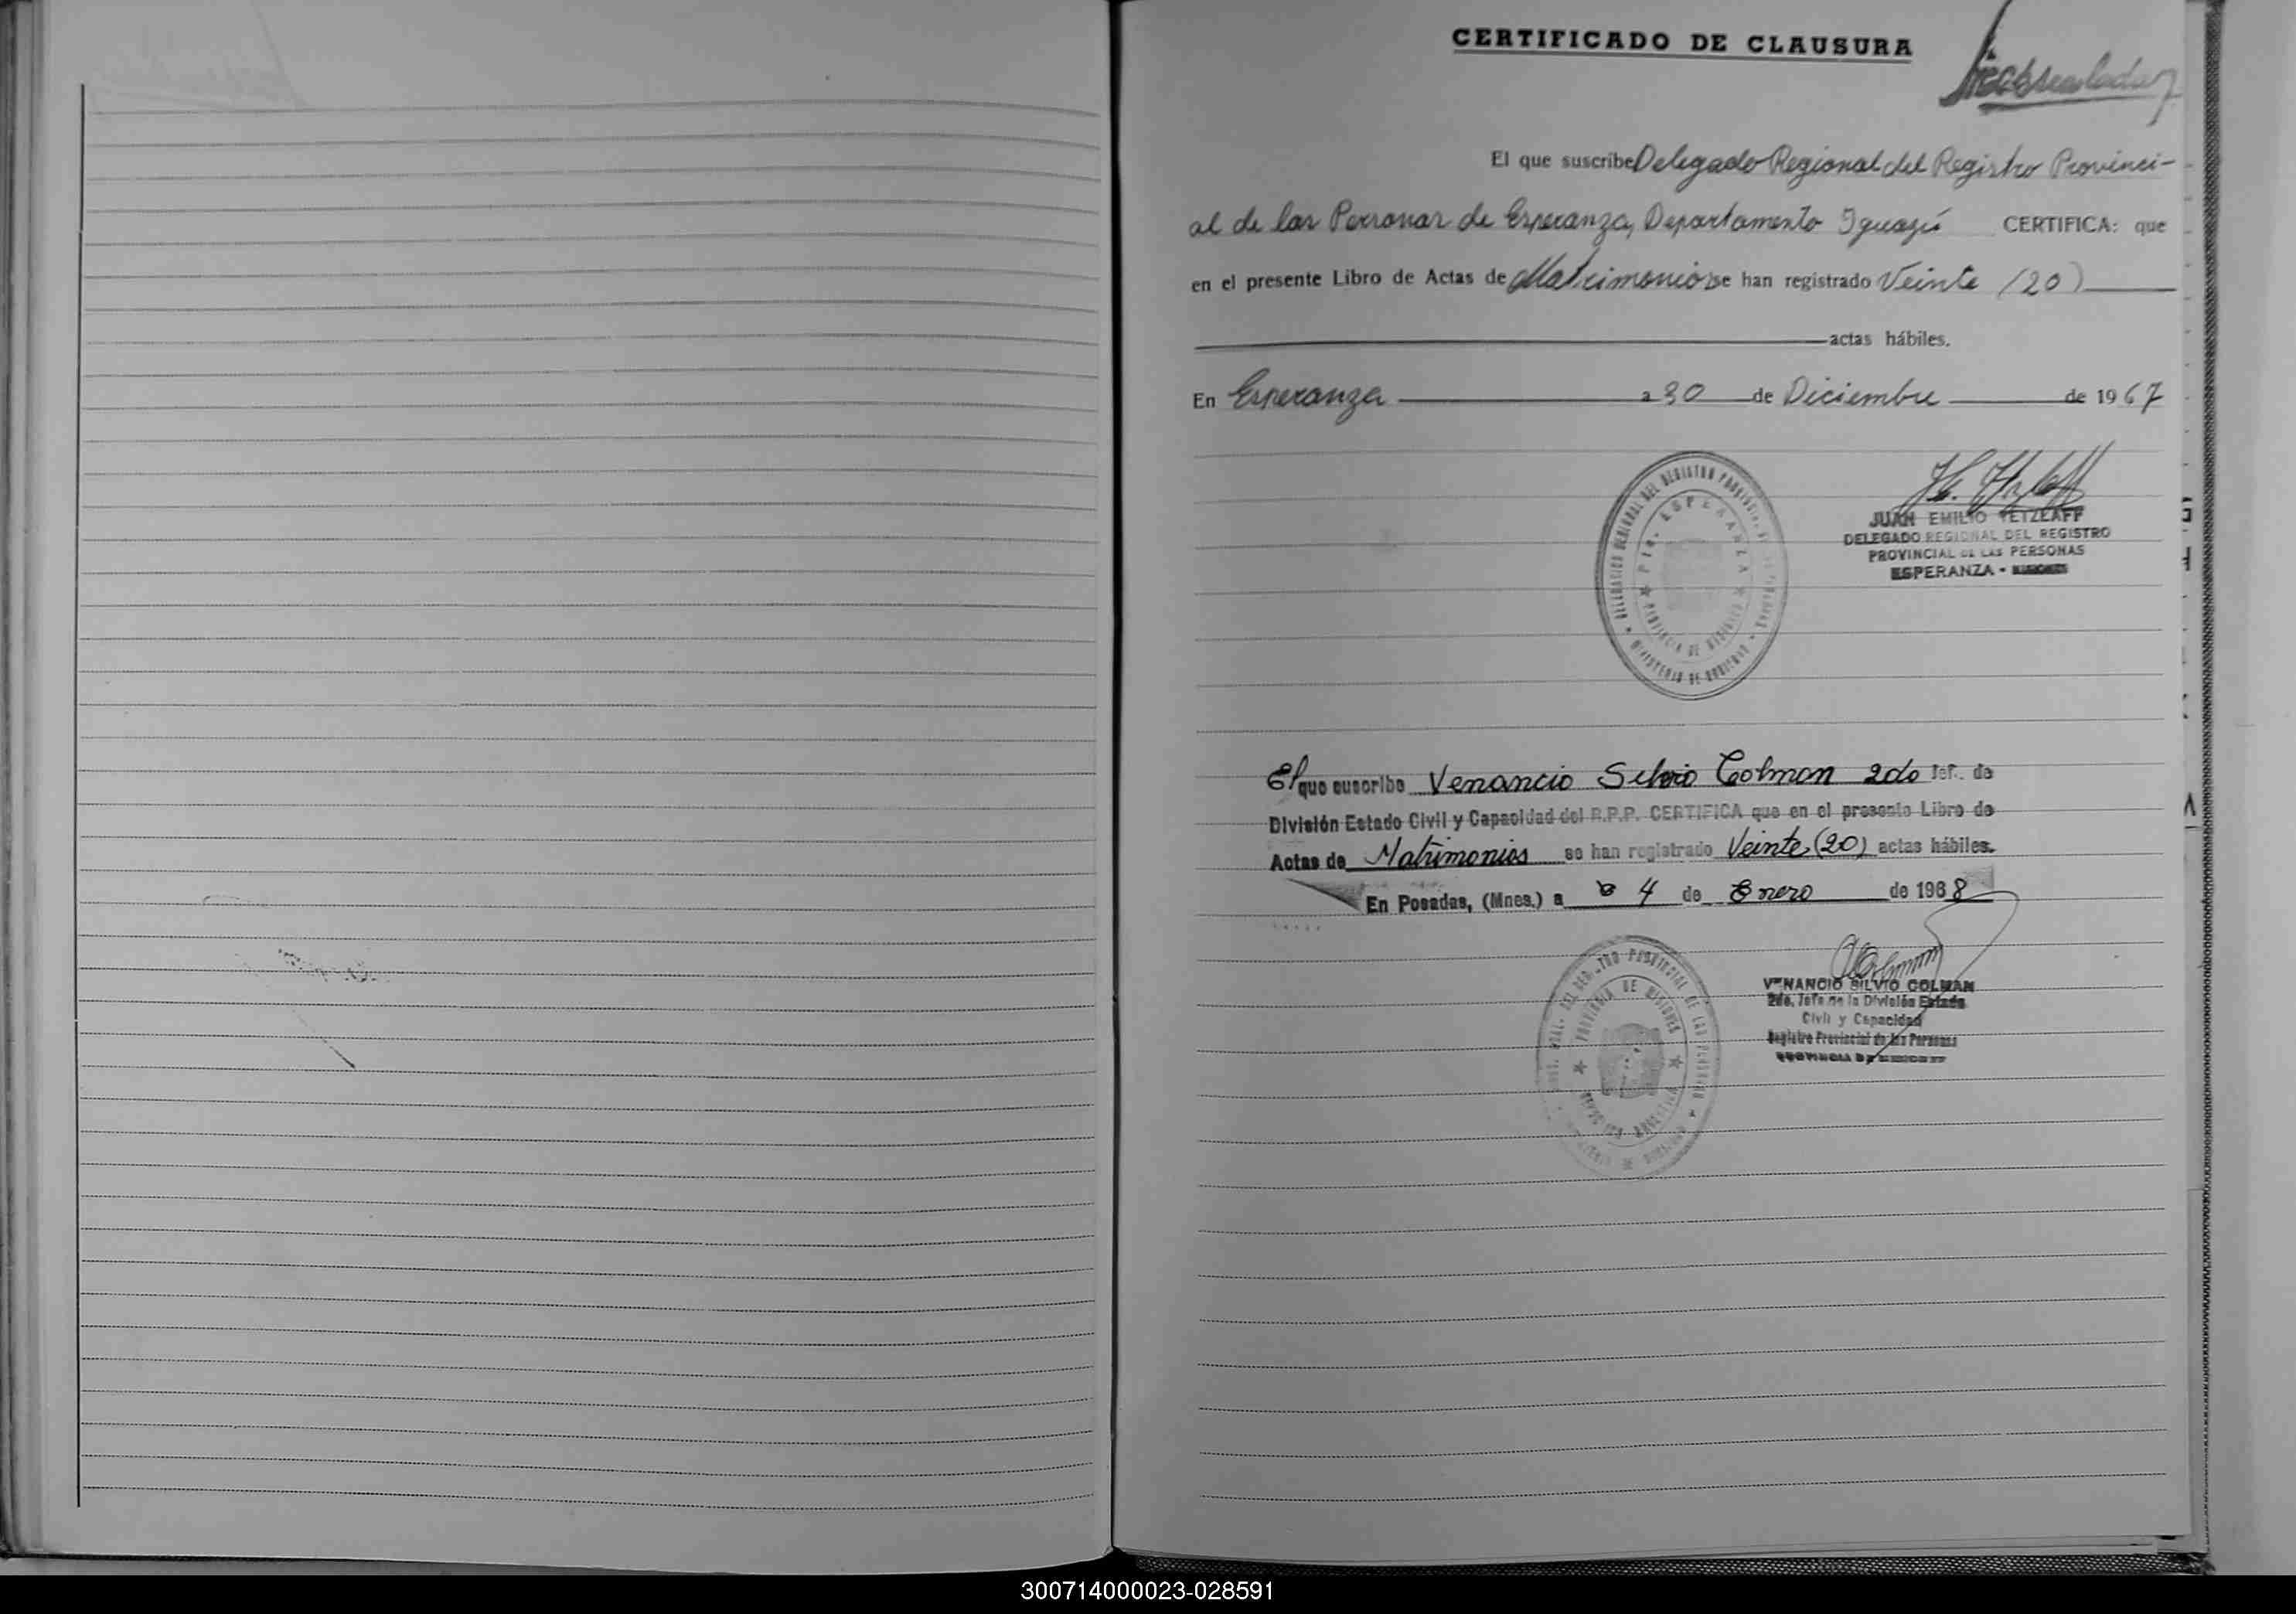 CERTIFICADO DE CLAUSURA
El que suscribe Delegado Regional del Registro Provinci-
al de las Personas de Esperanza, Departamento Iguazú CERTIFICA: que
en el presente Libro de Actas de Matrimonios se han registrado Veinte (20)
actas hábiles.
En Esperanza a 30 de Diciembre de 1967
JUAN EMILIO TETZLAFF
DELEGADO REGIONAL DEL REGISTRO
PROVINCIAL DE LAS PERSONAS
ESPERANZA -
DEL REGISTRO PROVINCIAL
PTO. ESPERANZA
PROVINCIA DE MISIONES
MINISTERIO DE GOBIERNO
El que suscribe Venancio Silvio Colman 2do Jef. de
División Estado Civil y Capacidad del R.P.P. CERTIFICA que en el presente Libro de
Actas de Matrimonios se han registrado Veinte (20) actas hábiles.
En Posadas, (Mnes.) a 4 de Enero de 1968
VENANCIO SILVIO COLMAN
2do. Jefe de la División Estado
Civil y Capacidad
Registro Provincial de las Personas
PROVINCIA DE MISIONES
PROVINCIA DE MISIONES
300714000023-028591